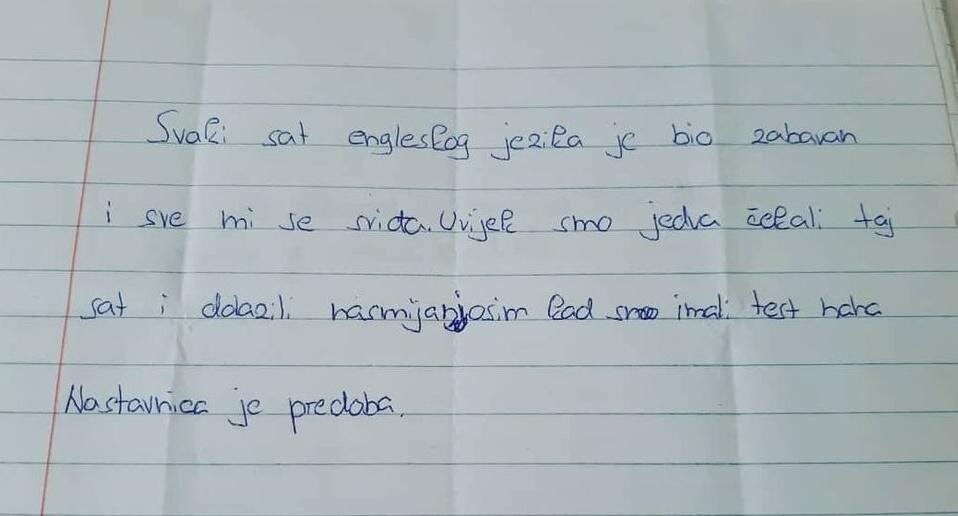 Svaki sat engleskog jezika je bio zabavan
i sve mi se sviđa. Uvijek smo jedva čekali taj
sat i dolazili nasmijani, osim kad smo imali test haha
Nastavnica je predoba.